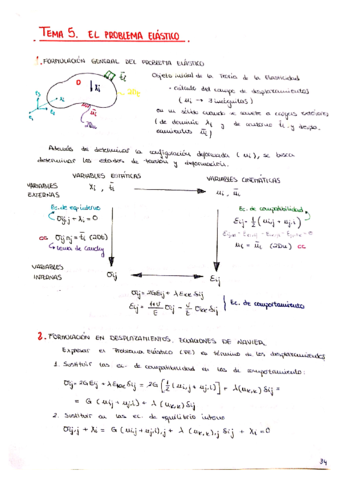 TEMA 5. EL PROBLEMA ELÁSTICO
1. FORMULACIÓN GENERAL DEL PROBLEMA ELÁSTICO
Objeto inicial de la Teoría de la Elasticidad
· cálculo del campo de desplazamientos
(ui → 3 incógnitas)
en un sólido cuando se somete a cargas exteriores
(de dominio Xi y de contorno t̄i y despla-
zamientos ūi)
Además de determinar la configuración deformada (ui), se busca
determinar los estados de tensión y deformación.
VARIABLES ESTÁTICAS VARIABLES CINEMÁTICAS
VARIABLES EXTERNAS Xi, t̄i ui, ūi
Ec. de equilibrio Ec. de compatibilidad
σij,j + Xi = 0 εij = 1/2 (ui,j + uj,i)
CC σij nj = t̄i CC ui = ūi
↳ Lema de Cauchy
VARIABLES INTERNAS σij εij
σij = 2Gεij + λ εkk δij
εij = (1+ν)/E σij − ν/E σkk δij } Ec. de comportamiento
2. FORMULACIÓN EN DESPLAZAMIENTOS. ECUACIONES DE NAVIER
Expresar el Problema Elástico (PE) en término de los desplazamientos
1. Sustituir las ec. de compatibilidad en las de comportamiento:
σij = 2Gεij + λ εkk δij = 2G [1/2 (ui,j + uj,i)] + λ(uk,k) δij =
= G (ui,j + uj,i) + λ(uk,k) δij
2. Sustituir en las ec. de equilibrio interno
σij,j + Xi = G (ui,j + uj,i),j + λ (uk,k),j δij + Xi = 0
34